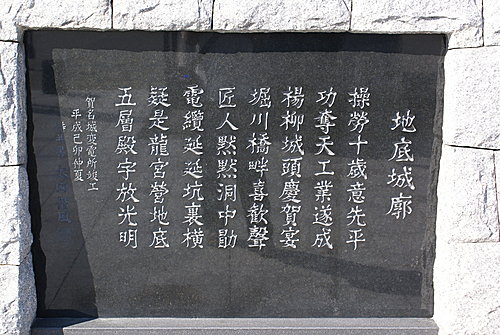 地底城廓
操勞十歳意先平
功奪天工業遂成
楊柳城頭慶賀宴
堀川橋畔喜歓聲
匠人黙黙洞中勛
電纜延延坑裏横
疑是龍宮營地底
五層殿宇放光明
賀名城変電所竣工
平成己卯仲夏